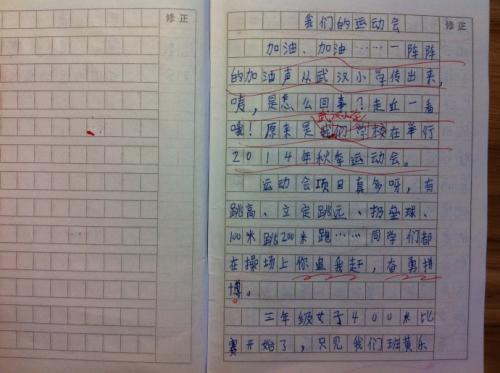 修正
修正
我们的运动会
加油、加油……一阵阵
的加油声从武汉小学传出来,
咦,是怎么回事?走近一看
武汉小学
哦!原来是我们学校在举行
2014年秋季运动会。
运动会项目真多呀,有
跳高、立定跳远、扔垒球、
100米跑200米跑……同学们都
在操场上你追我赶,奋勇拼
博。
三年级女子400米比
赛开始了,只见我们班黄乐